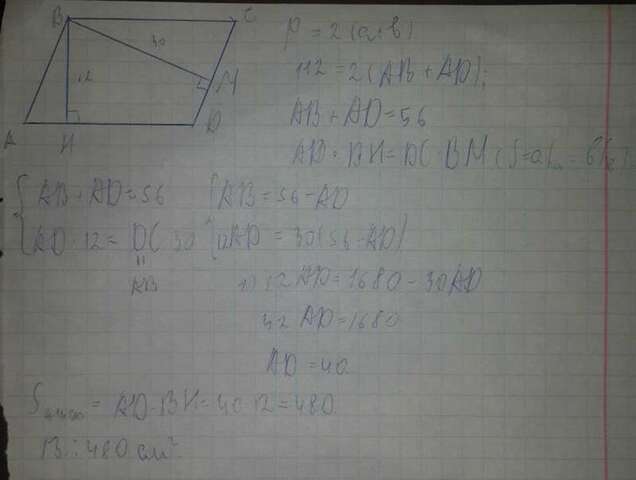 B C
30
12
M
A H D
P = 2(a+b)
112 = 2(AB + AD);
AB + AD = 56
AD · BH = DC · BM (S = ah₁ = bh₂)
{ AB + AD = 56 { AB = 56 - AD
{ AD · 12 = DC · 30 { 12AD = 30(56 - AD)
=
AB
1) 12AD = 1680 - 30AD
42 AD = 1680
AD = 40
= AD · BH = 40 · 12 = 480
В: 480 см²